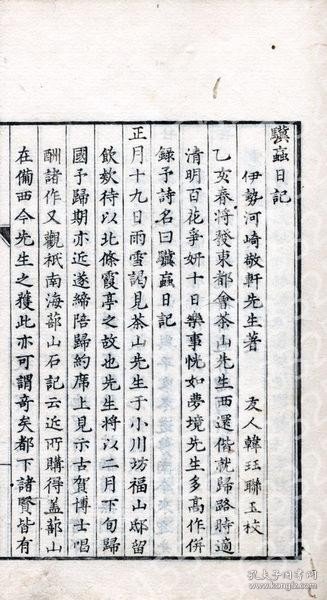 驥蝱日記
伊勢河崎敬軒先生著　友人韓珏聯玉校
乙亥春將發東都會茶山先生西還偕就歸路時適
清明百花爭妍十日樂事恍如夢境先生多高作併
錄予詩名曰驥蝱日記
正月十九日雨雪謁見茶山先生于小川坊福山邸留
飲欸待以北條霞亭之故也先生將以二月下旬歸
國予歸期亦近遂締陪歸約席上見示古賀博士唱
酬諸作又觀祇南海蔀山石記云近所購得盖蔀山
在備西今先生之獲此亦可謂奇矣都下諸賢皆有
孔夫子旧书网